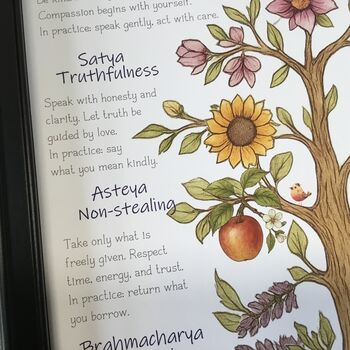 Compassion begins with yourself.
In practice: speak gently, act with care.
Satya
Truthfulness
Speak with honesty and
clarity. Let truth be
guided by love.
In practice: say
what you mean kindly.
Asteya
Non-stealing
Take only what is
freely given. Respect
time, energy, and trust.
In practice: return what
you borrow.
Brahmacharya